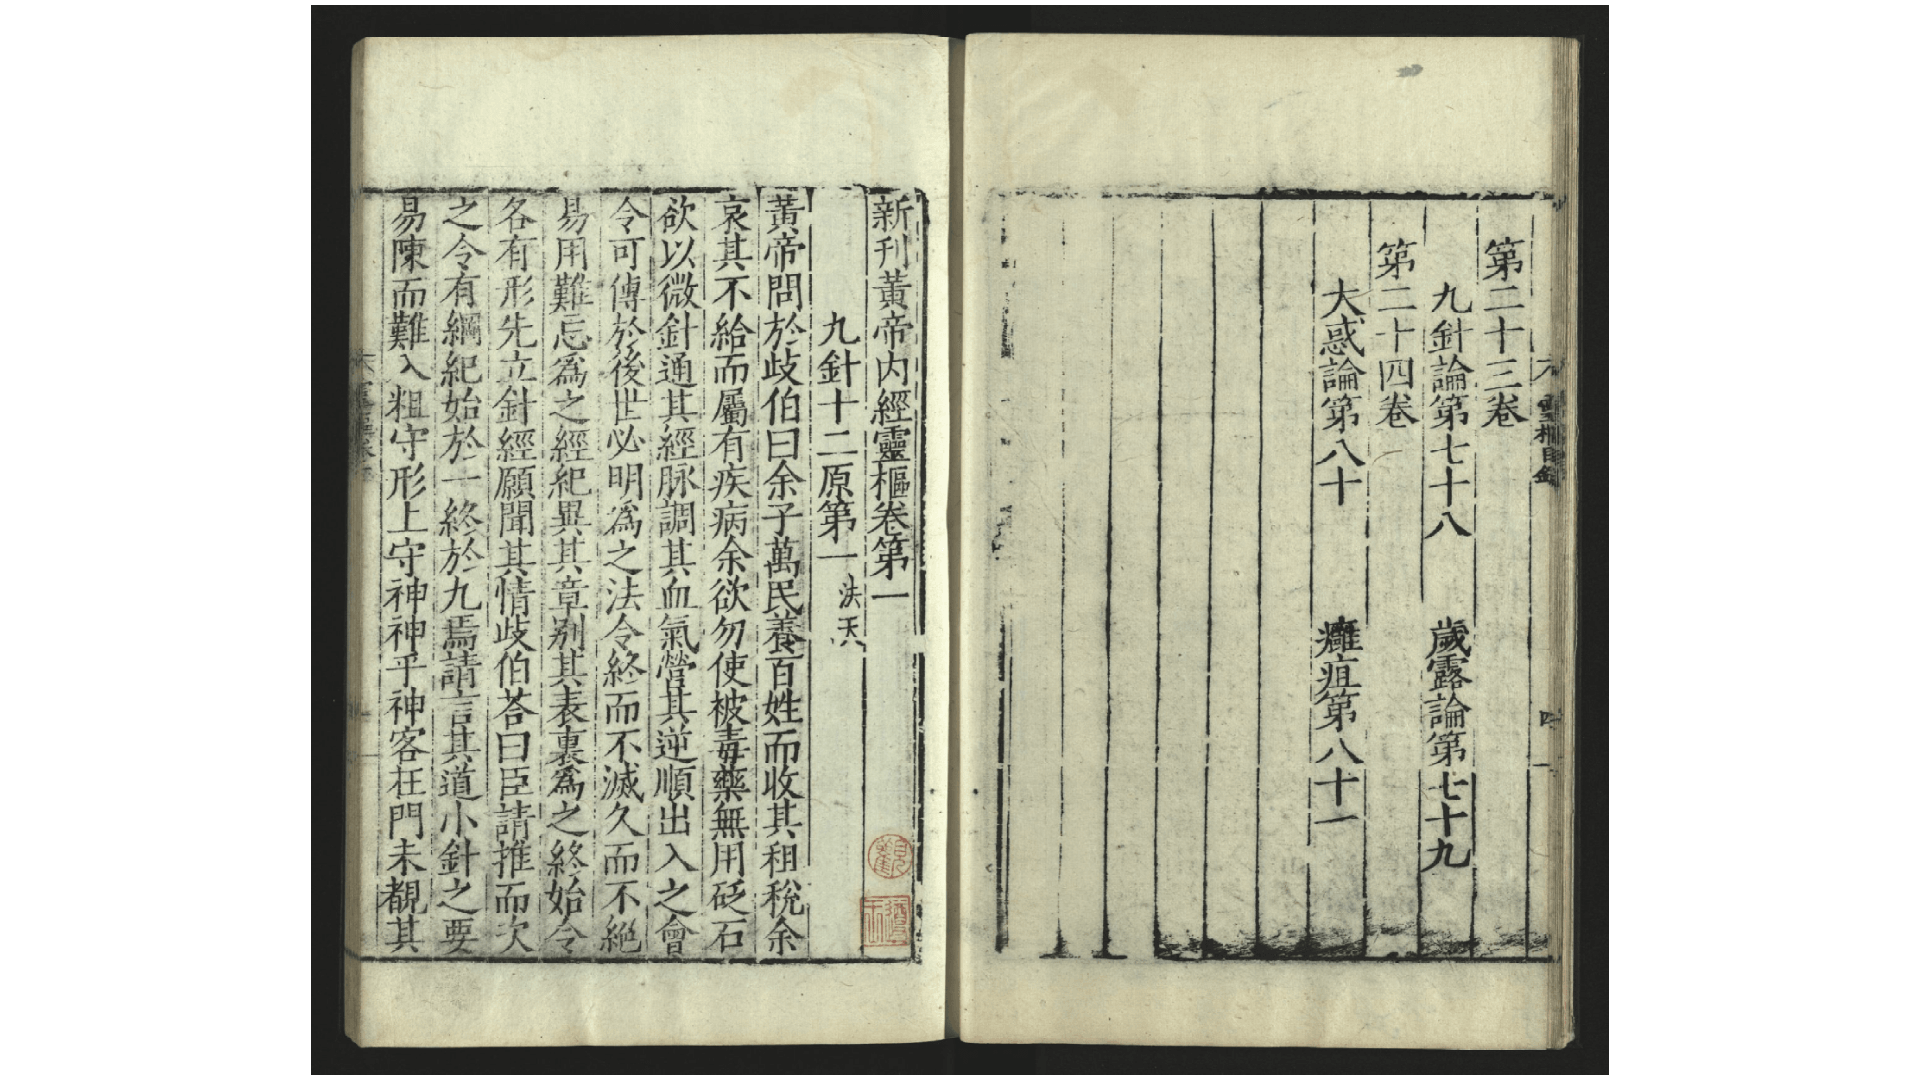 第二十三卷
九針論第七十八　歲露論第七十九
第二十四卷
大惑論第八十　癰疽第八十一
新刊黃帝内經靈樞卷第一
九針十二原第一 法天
黃帝問於歧伯曰余子萬民養百姓而收其租稅余
哀其不給而屬有疾病余欲勿使被毒藥無用砭石
欲以微針通其經脉調其血氣營其逆順出入之會
令可傳於後世必明爲之法令終而不滅久而不絶
易用難忘爲之經紀異其章别其表裏爲之終始令
各有形先立針經願聞其情歧伯荅曰臣請推而次
之令有綱紀始於一終於九焉請言其道小針之要
易陳而難入粗守形上守神神乎神客在門未覩其